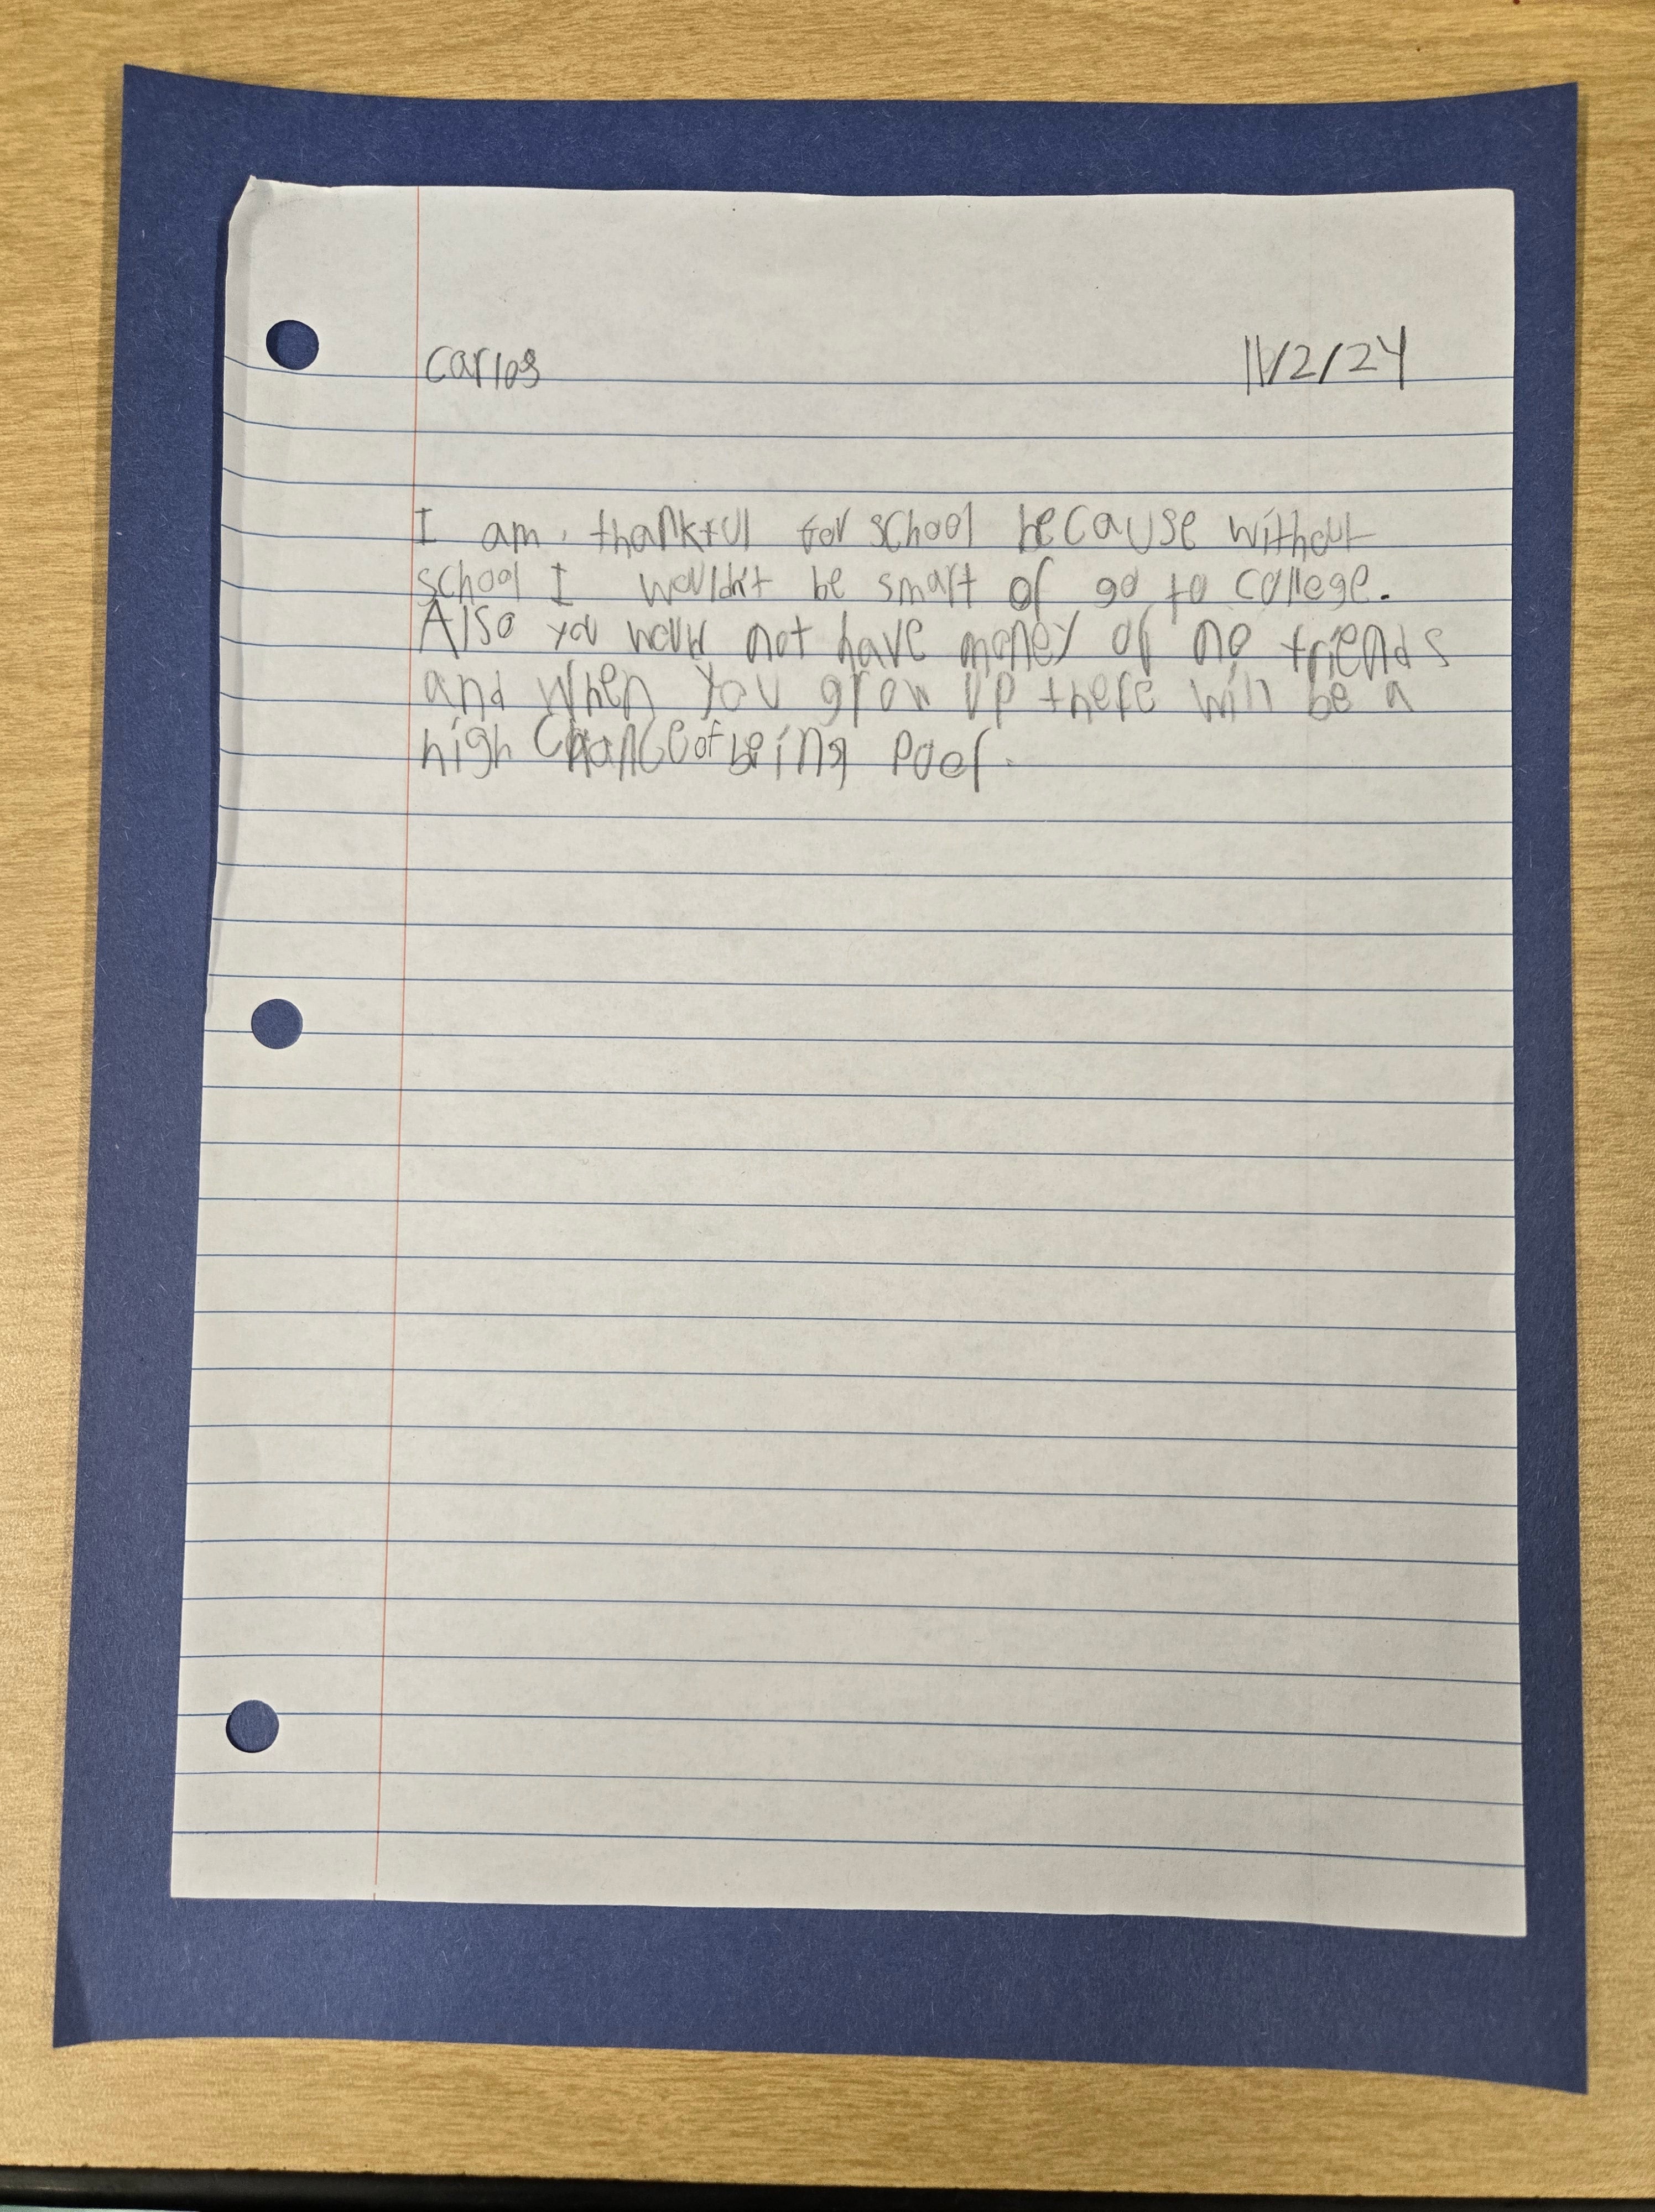 Carlos 11/2/24
I am thankful for school because without
school I wouldn't be smart or go to college.
Also you would not have money or no friends
and when you grow up there will be a
high chance of being poor.